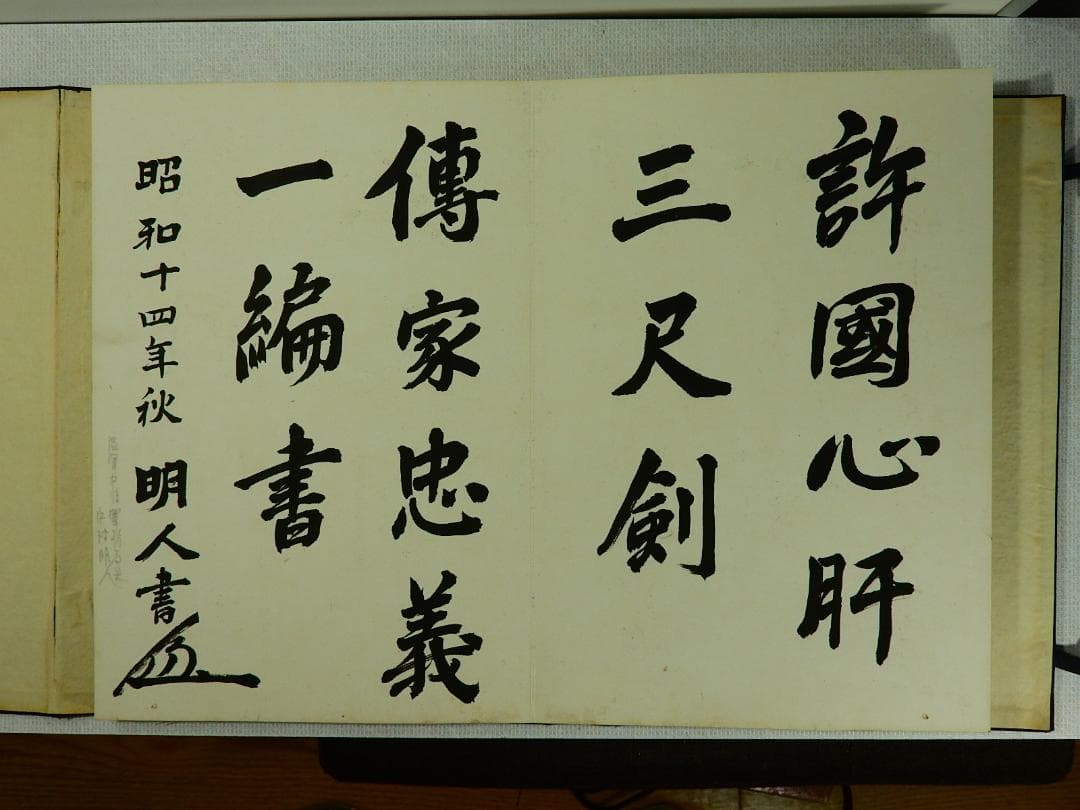 許國心肝
三尺劍
傳家忠義
一編書
昭和十四年秋 明人書